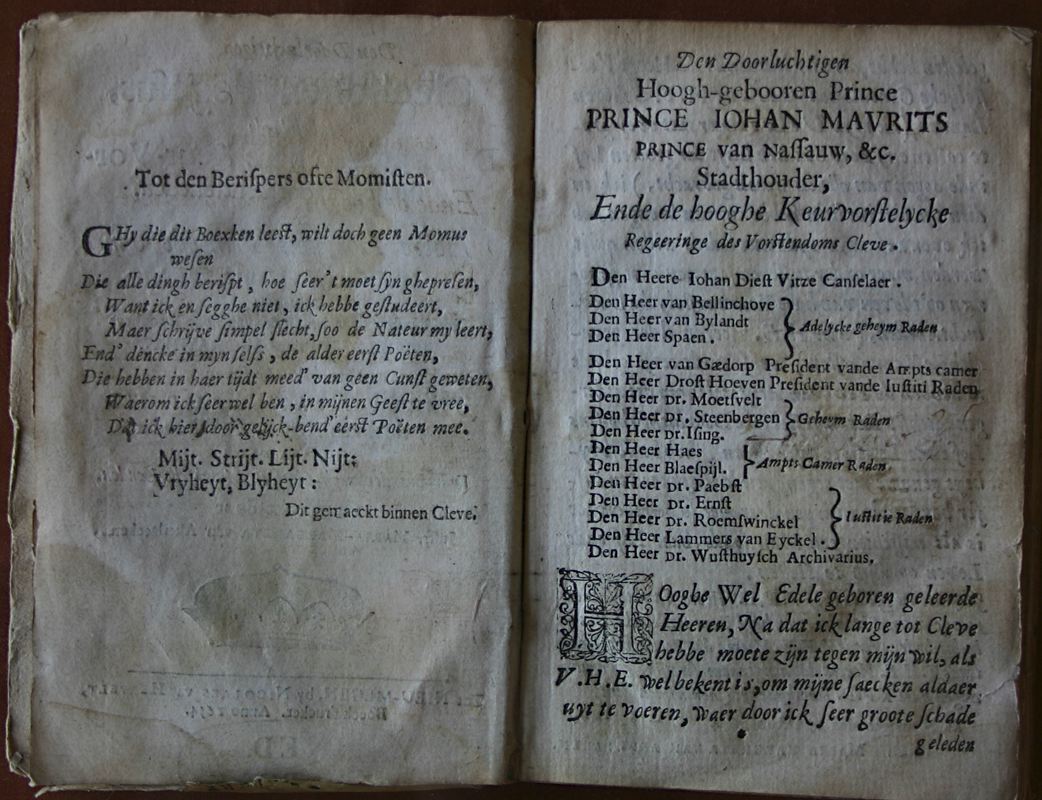 Tot den Beriſpers ofte Momiſten.
GHy die dit Boexken leeſt, wilt doch geen Momus
weſen
Die alle dingh beriſpt, hoe ſeer't moet ſyn ghepreſen,
Want ick en ſegghe niet, ick hebbe geſtudeert,
Maer ſchrijve ſimpel ſlecht, ſoo de Nateur my leert,
End' dencke in myn ſelfs, de alder eerſt Poëten,
Die hebben in haer tijdt meed' van geen Cunſt geweten,
Waerom ick ſeer wel ben, in mijnen Geeſt te vree,
Dat ick hier door gelijck-bend' eerſt Poëten mee.
Mijt. Strijt. Lijt. Nijt:
Vryheyt, Blyheyt:
Dit gemaeckt binnen Cleve.
Den Doorluchtigen
Hoogh-gebooren Prince
PRINCE IOHAN MAVRITS
PRINCE van Naſſauw, &c.
Stadthouder,
Ende de hooghe Keurvorſtelycke
Regeeringe des Vorſtendoms Cleve.
Den Heere Iohan Dieſt Vitze Canſelaer.
Den Heer van Bellinchove
Den Heer van Bylandt } Adelycke geheym Raden
Den Heer Spaen.
Den Heer van Gædorp Preſident vande Ampts camer
Den Heer Droſt Hoeven Preſident vande Iuſtiti Raden
Den Heer Dr. Moetſvelt
Den Heer Dr, Steenbergen } Geheym Raden
Den Heer Dr. Iſing.
Den Heer Haes
Den Heer Blaeſpijl. } Ampts Camer Raden
Den Heer Dr. Paebſt
Den Heer Dr. Ernſt
Den Heer Dr. Roemſwinckel } Iuſtitie Raden
Den Heer Lammers van Eyckel.
Den Heer Dr. Wuſthuyſch Archivarius.
HOoghe Wel Edele geboren geleerde
Heeren, Na dat ick lange tot Cleve
hebbe moete zijn tegen mijn wil, als
V.H.E. wel bekent is, om mijne ſaecken aldaer
uyt te voeren, waer door ick ſeer groote ſchade
geleden